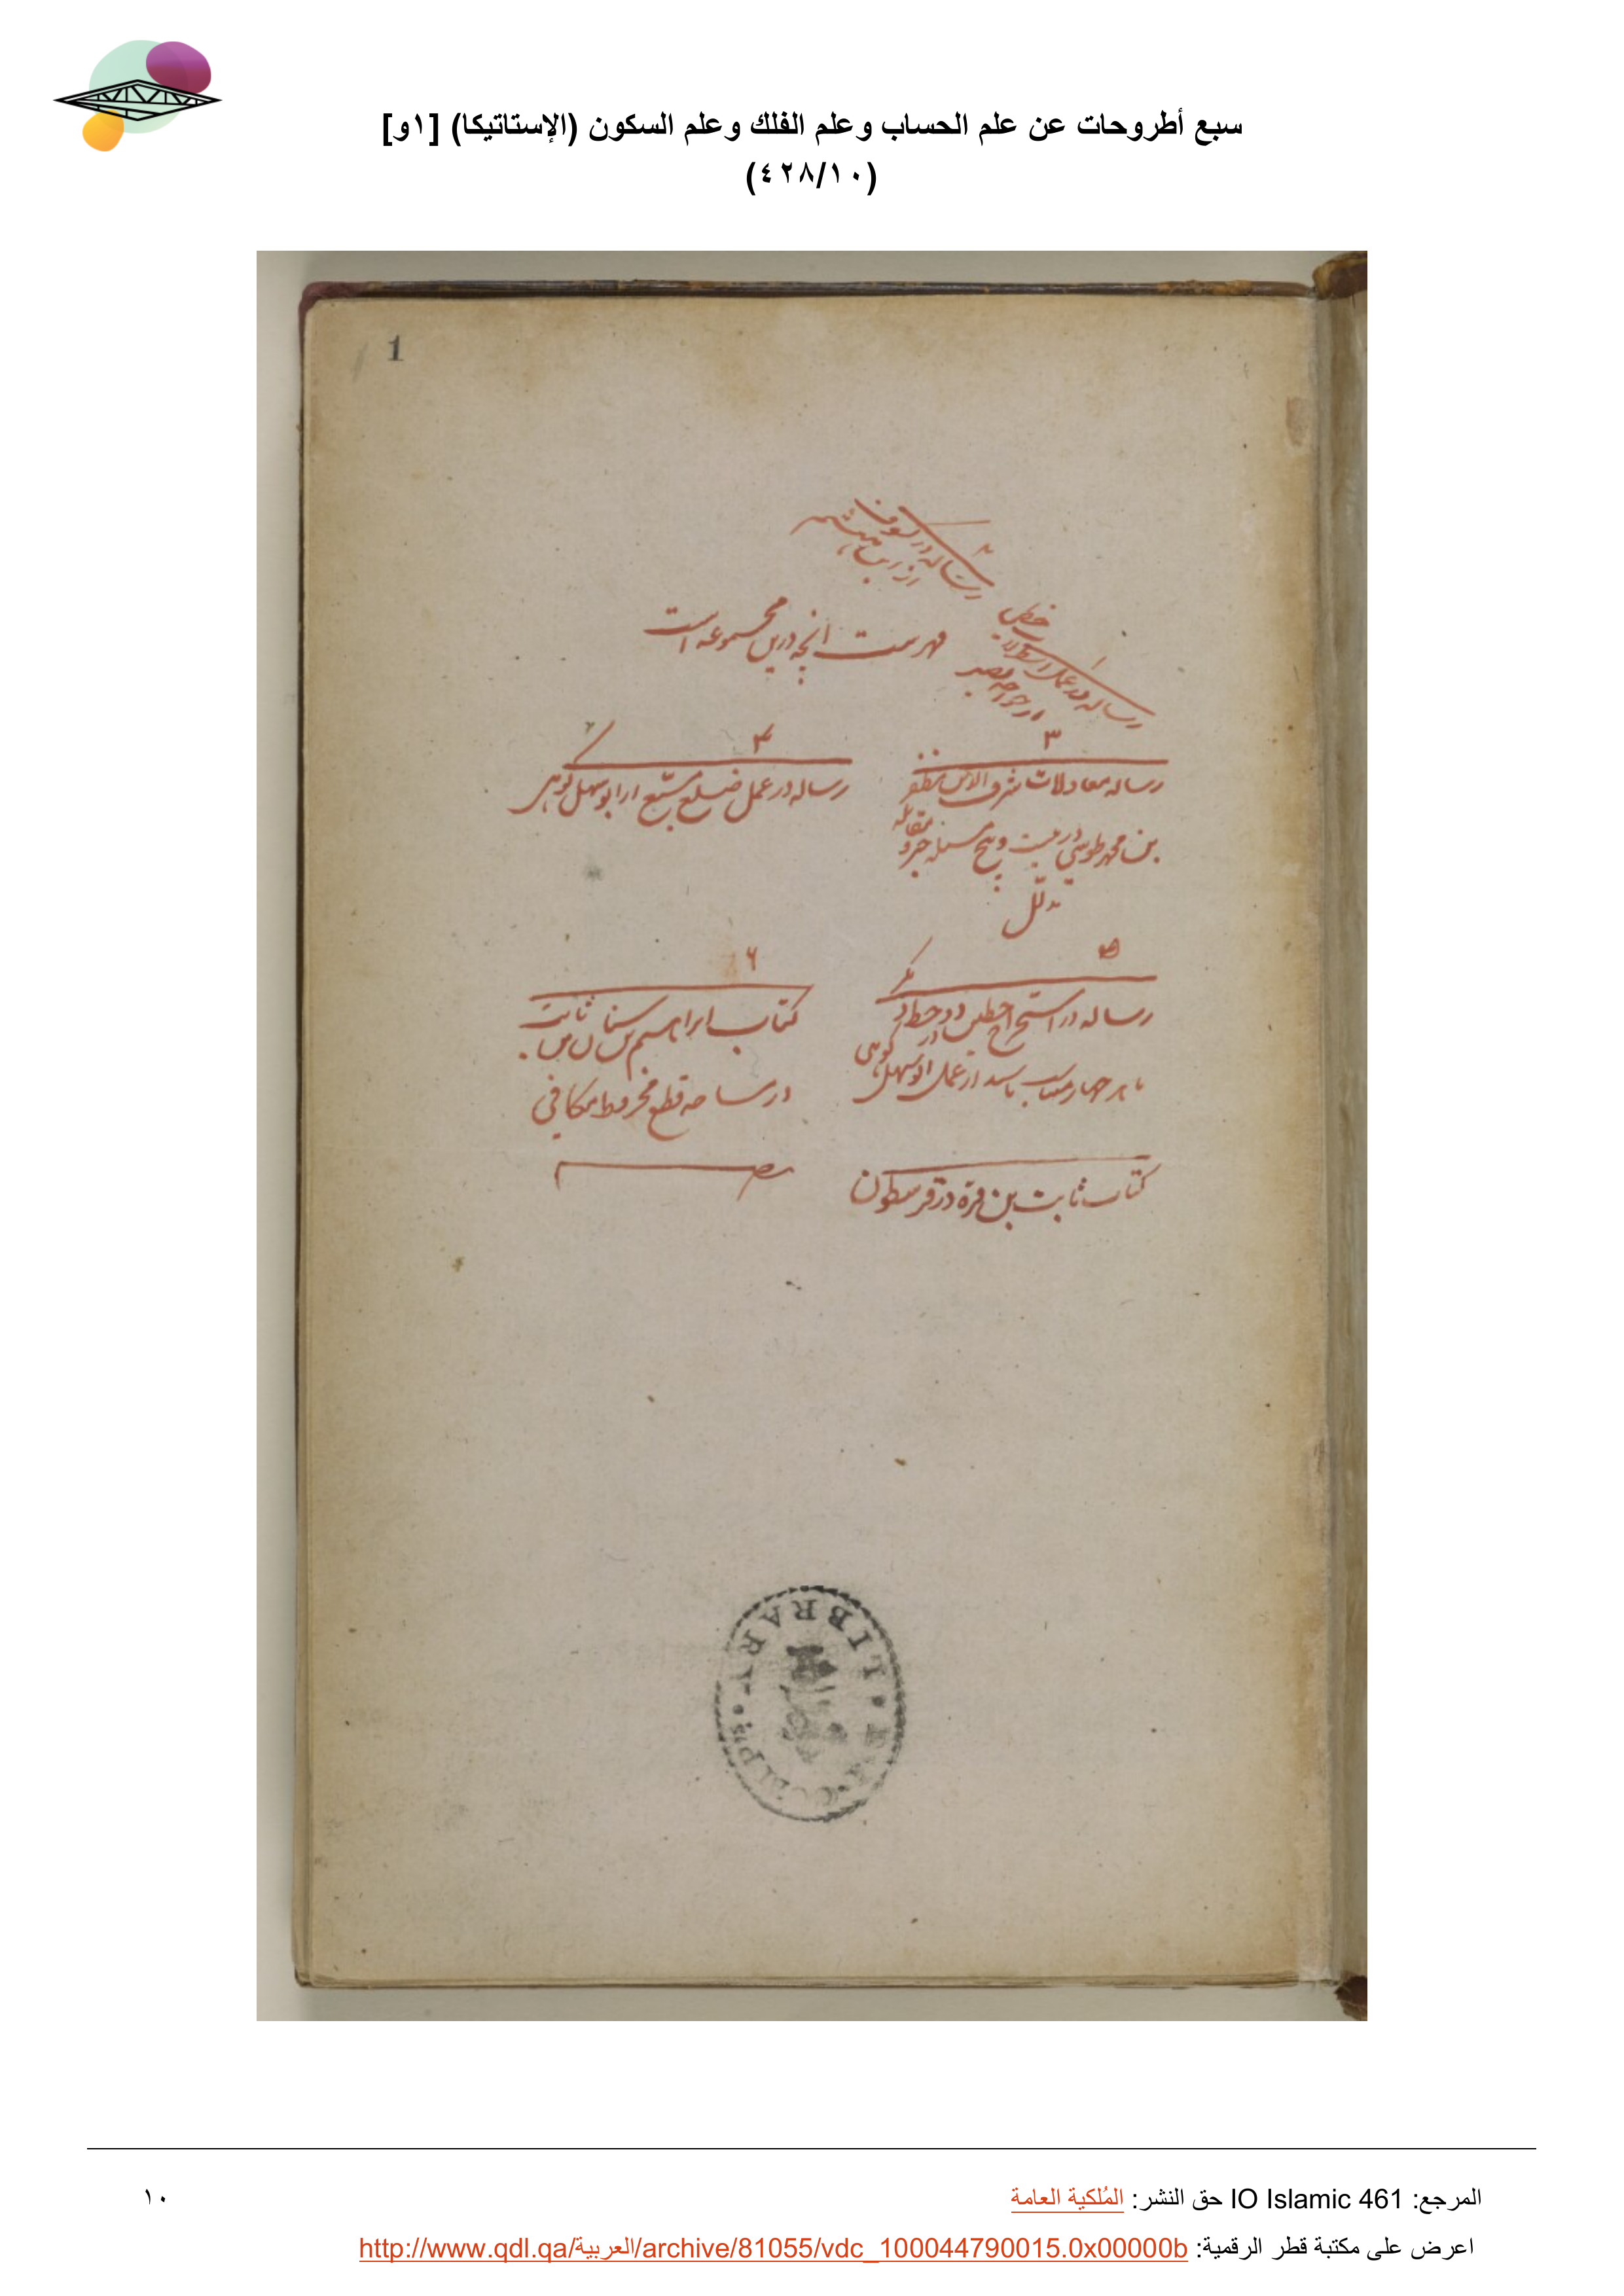 سبع أطروحات عن علم الحساب وعلم الفلك وعلم السكون (الإستاتيكا) [١و]
(٤٢٨/١٠)
1
رساله در کسوف
از ابن هیثم
فهرست آنچه درین مجموعه است
رساله در عمل
از خواجه نصیر
٣
رساله معادلات شرف الدین مظفر
بن محمد طوسی در بیست و پنج مسئله جبر و مقابله
۴
رساله در عمل ضلع مسبّع از ابو سهل کوهی
۵
رساله در استخراج خطین دو خط
چهار باشد از عمل ابو سهل کوهی
۶
کتاب ابراهیم بن سنان بن ثابت
در مساحه قطع مخروط مکافی
کتاب ثابت بن قره در قرسطون
LIBRARY
المرجع: IO Islamic 461 حق النشر: المُلكية العامة
١٠
اعرض على مكتبة قطر الرقمية: http://www.qdl.qa/العربية/archive/81055/vdc_100044790015.0x00000b